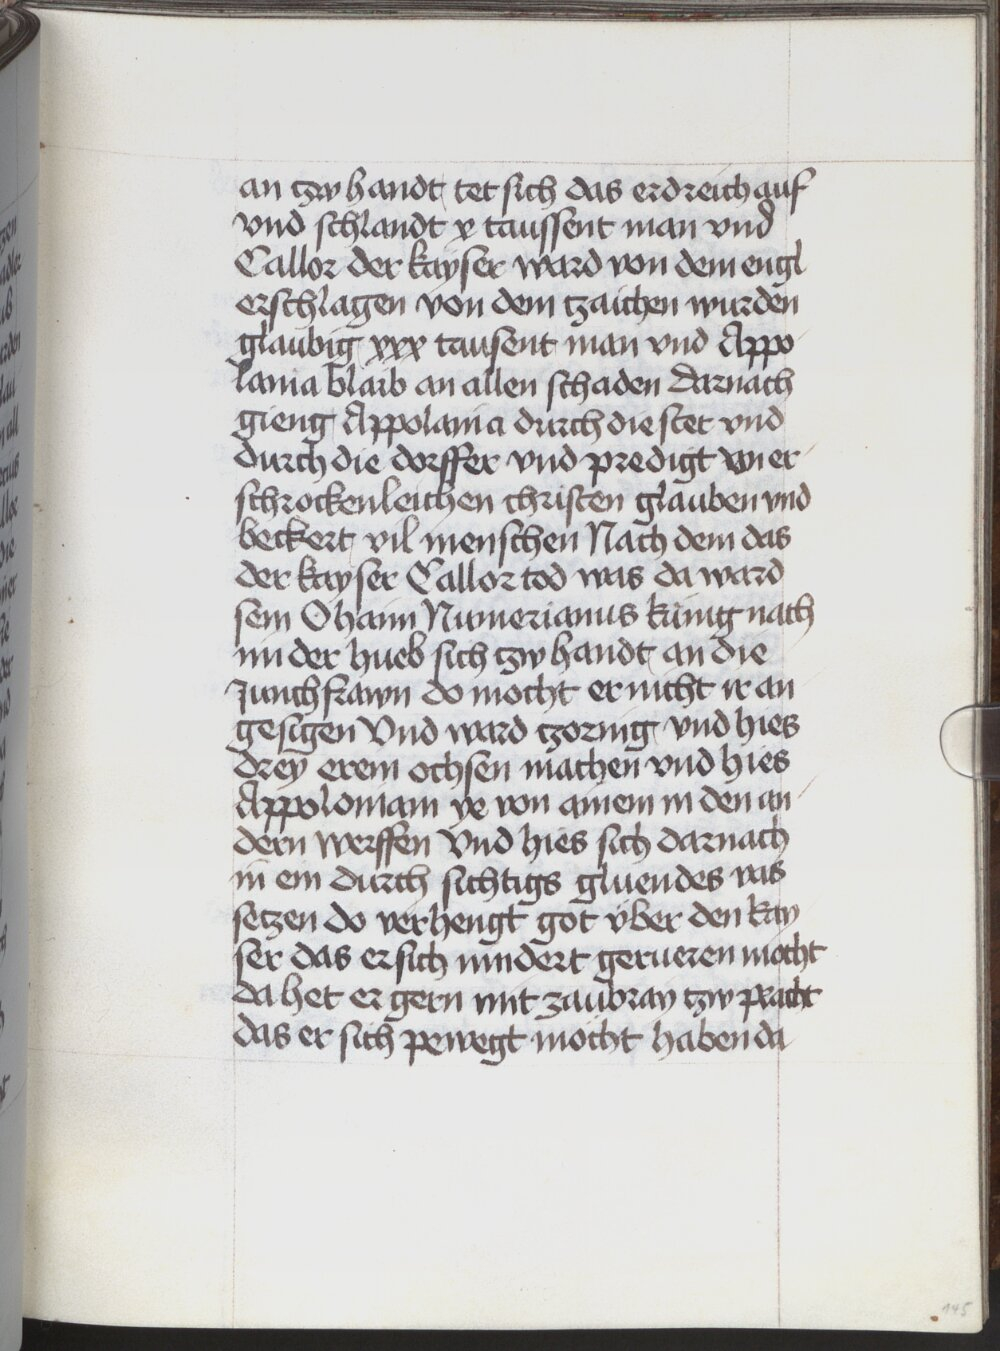 an tzw handt tet sich das erdreich auf
vnd schlandt x taussent man vnd
Callor der kayser ward von dem engl
erschlagen von dem tzaichen wurden
glaubig xxx tausent man vnd Appo
lania blaib an allen schaden Darnach
gieng Appolania durch die stet vnd
durch die dorffer vnd predigt vn er
schrockenleichen christen glauben vnd
beckert vil menschen Nach dem das
der kayser Callor tod was da ward
sein Ohaim Numerianus kunig nach
im der hueb sich tzw handt an die
Junchfrawn do mocht er nicht ir an
gesigen Vnd ward tzornig vnd hies
drey erein ochsen machen vnd hies
Appoloniam ye von ainem in den an
dern werffen Vnd hies sich darnach
in ein durch sichtigs gluendes vas
setzen do verhengt got vber den kay
ser das er sich nindert gerueren mocht
da het er gern mit zaubray tzw pracht
das er sich pewegt mocht haben da
145